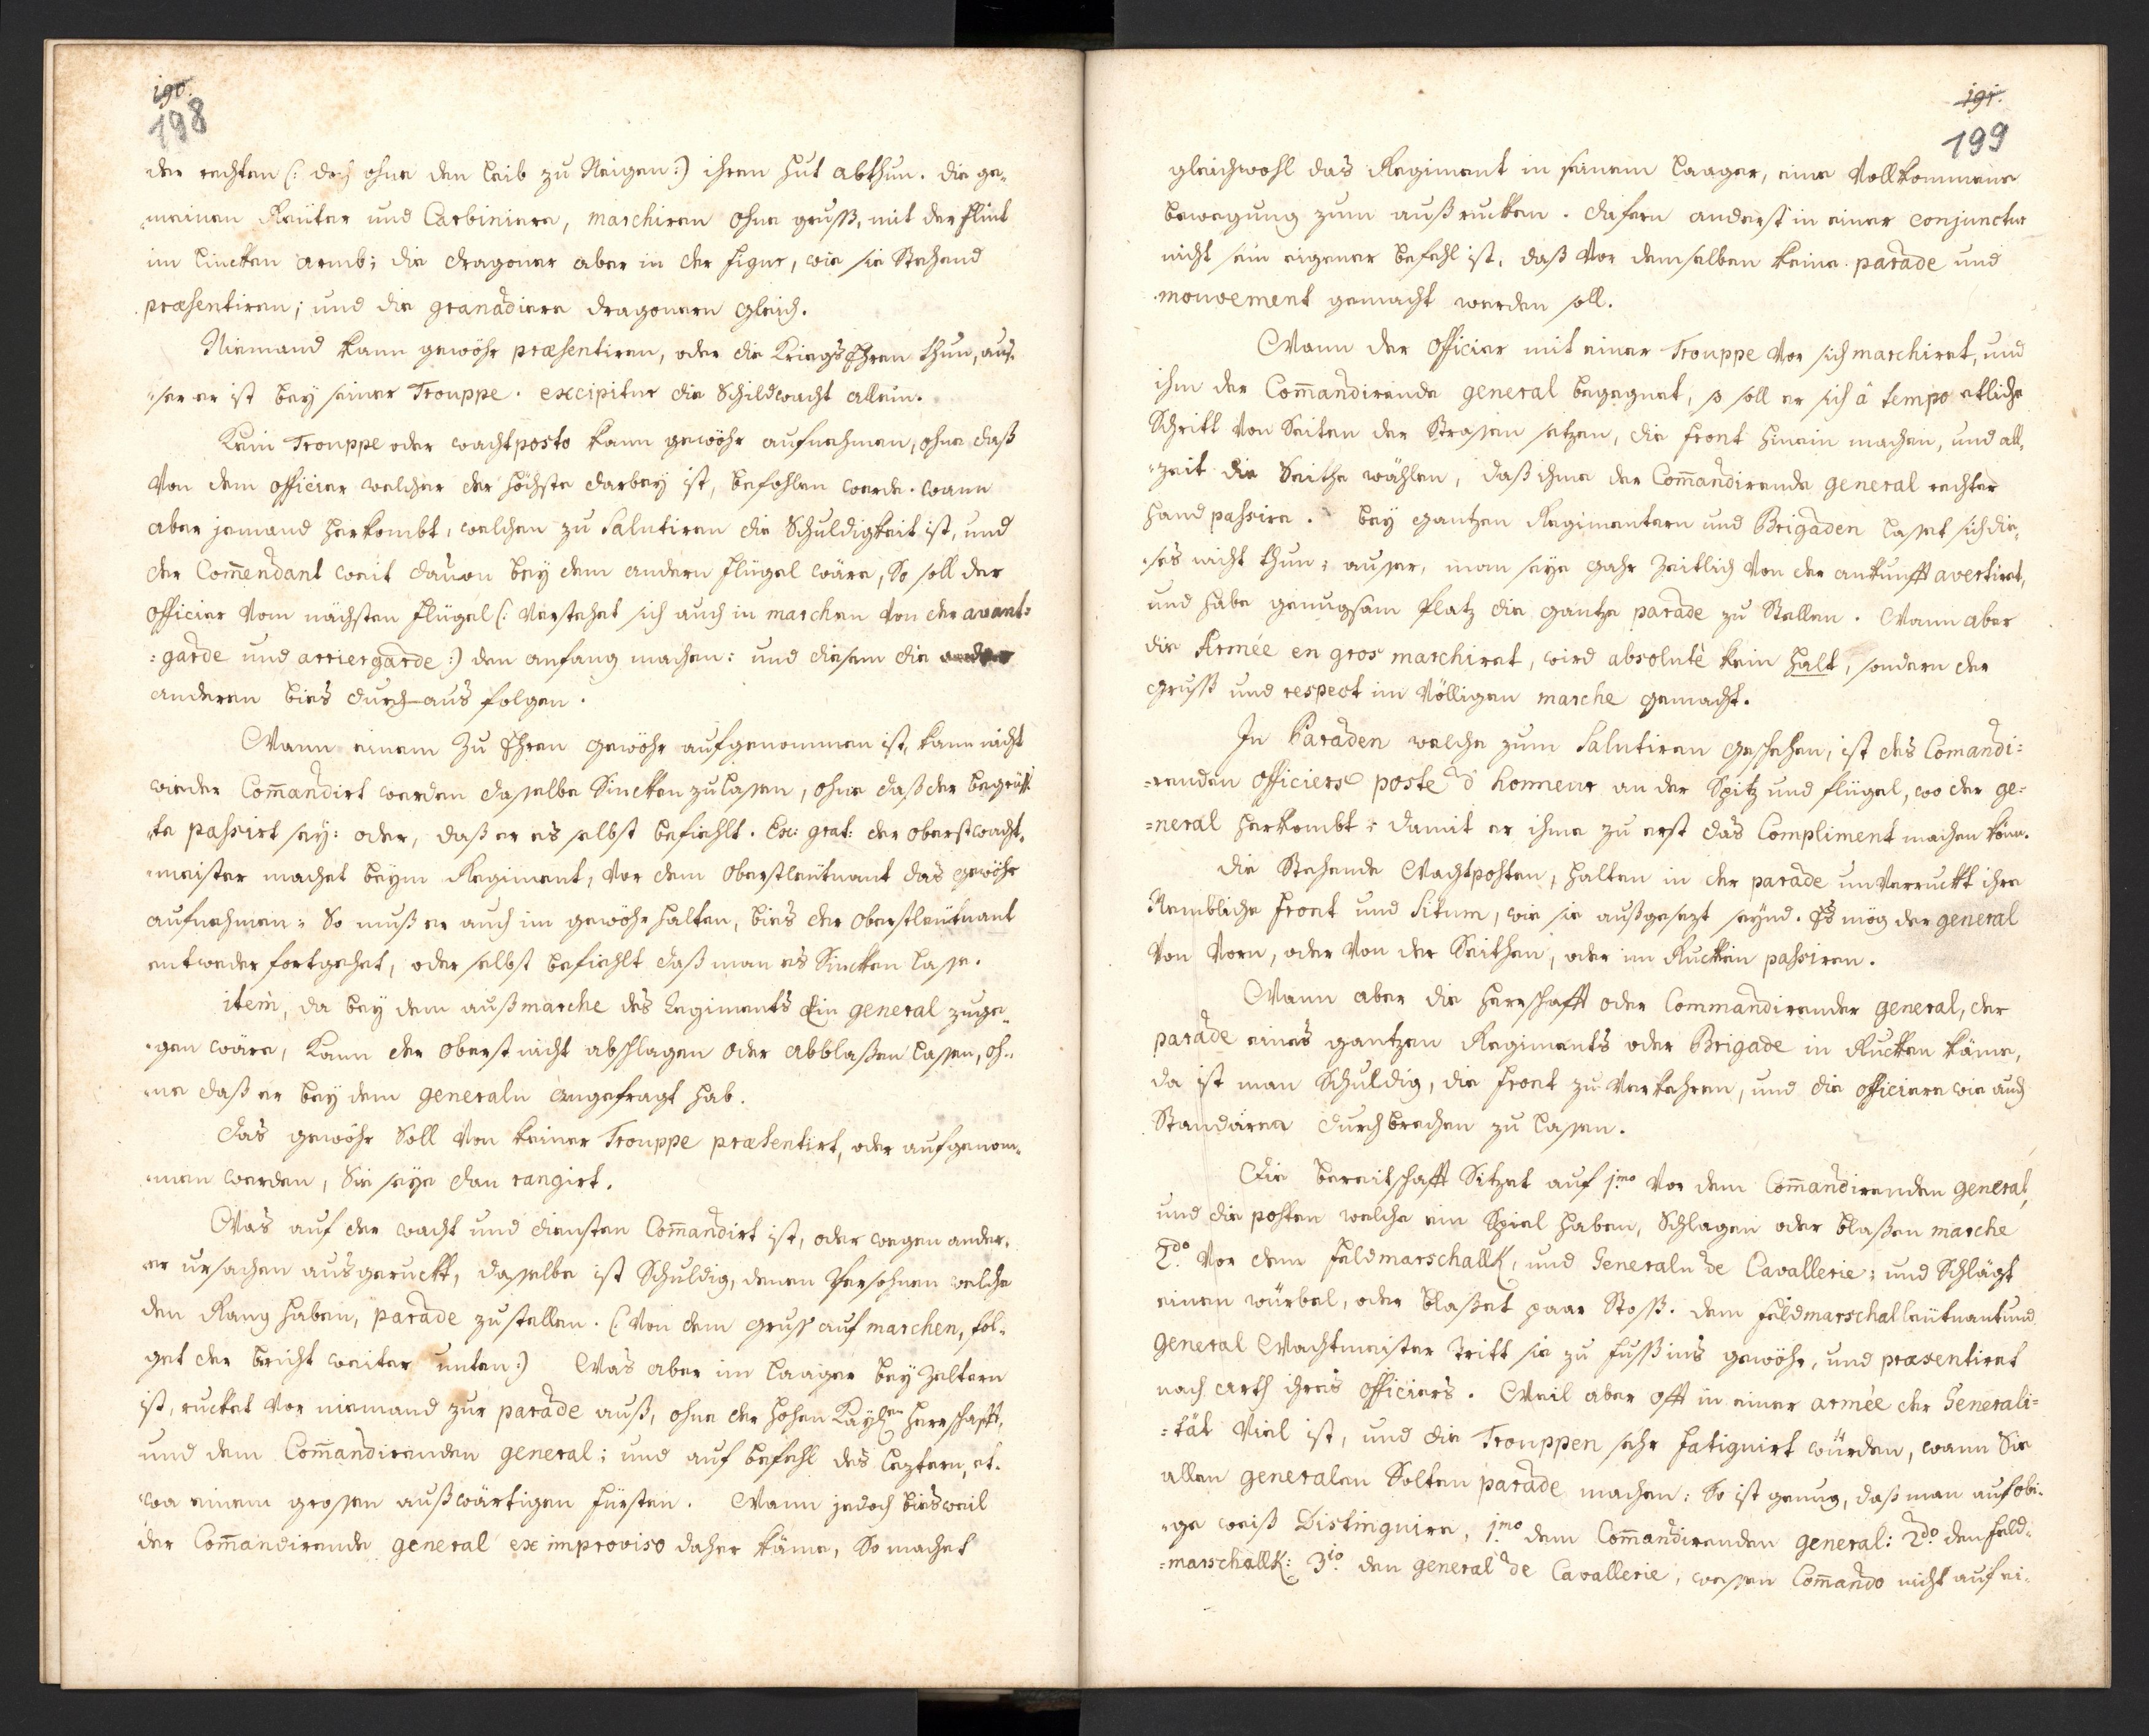 190.
198
der rechten (: doch ohne den Leib zu Neigen :) ihren Hut abthun. die ge„
„meinen Reüter und Carbiniere, marchiren ohne gruß, mit der flint
im Lincken armb; die dragoner aber in der figur, wie sie Stehend
præsentiren; und die granadiere dragonern gleich.
Niemand kann gewöhr præsentiren, oder die Kriegs Ehren thun, aus„
„ser er ist bey seiner Trouppe. excipitur die Schildwacht allein.
Kein Trouppe oder wacht posto kann gewöhr aufnehmen, ohne daß
Von dem officier welcher der Höchste darbey ist, befohlen werde. wann
aber jemand herkombt, welchen zu Salutiren die Schuldigkeit ist, und
der Com̄endant weit dauon bey dem andern flügel wäre, So soll der
officier Vom nächsten flügel (: Verstehet sich auch in marchen Von der avant=
=garde und arriergarde :) den anfang machen: und diesem die
anderen bies durch-aus folgen.
Wann einem Zu Ehren gewöhr aufgenommen ist, kann nicht
wieder Com̄andirt werden dasselbe Sincken zulassen, ohne daß der begrüß„
„te passirt sey: oder, daß er es selbst befiehlt. Ex: grat: der Oberstwacht„
„meister machet beym Regiment, Vor dem Oberstleütnant das gewöhr
aufnehmen: So muß er auch im gewöhr halten, bies der Oberstleütnant
entweder fortgehet, oder selbst befiehlt daß man es Sincken lasse.
item, da bey dem außmarche des Regiments Ein general zuge„
„gen wäre, Kann der Oberst nicht abschlagen oder abblaßen lassen, oh„
„ne daß er bey dem generaln angefragt hab.
das gewöhr Soll Von keiner Trouppe præsentirt, oder aufgenom„
„men werden, Sie seye dan rangirt.
Was auf der wacht und diensten Com̄andirt ist, oder wegen ander„
er ursachen ausgeruckt, dasselbe ist Schuldig, denen Persohnen welche
den Rang haben, parade zu stellen. (: Von dem gruß auf marchen, fol„
get der bericht weiter unten :) Was aber im Laager bey Zeltern
ist, rucket Vor niemand zur parade auß, ohne der hohen Kayßen Herrschafft,
und dem Com̄andirenden general; und auf befehl des leztern, et„
wa einem grossen außwärtigen fürsten. Wann jedoch biesweil
der Com̄andirende general ex improviso daher käme, So machet
191.
199
gleichwohl das Regiment in seinem Laager, eine Vollkommene
bewegung zum außrucken. dafern anderst in einer conjunctur
nicht sein eigener befehl ist, daß Vor demselben keine parade und
mouvement gemacht werden soll.
Wann der Officier mit einer Trouppe Vor sich marchiret, und
ihm der Com̄andirende general begegnet, so soll er sich â tempo etliche
Schritt Von Seiten der Strassen setzen, die front hinein machen, und all„
„zeit die Seithe wählen, daß ihme der Com̄andirende general rechter
hand passire. bey gantzen Regimentern und Brigaden lasset sich die„
„ses nicht thun; ausser, man seye gahr Zeitlich Von der ankunfft avertiret,
und habe genugsam platz die gantze parade zu Stellen. Wann aber
die Armée en gros marchiret, wird absolutè kein halt, sondern der
gruß und respect im Völligen marche gemacht.
In Paraden welche zum Salutiren geschehen, ist des Comandi=
=renden Officiers poste d'honneur an der Spitz und flügel, wo der ge=
=neral herkombt; damit er ihme zu erst das Compliment machen kön̄e.
die Stehende Wachtposten, halten in der parade unverruckt ihre
Nembliche front und Situm, wie sie außgesezt seynd. Es mög der general
Von Vorn, oder Von der Seithen, oder im Rucken passiren.
Wann aber die herrschafft oder Commandirender general, der
parade eines gantzen Regiments oder Brigade in Rucken käme,
da ist man Schuldig, die front zu Verkehren, und die officiere wie auch
Standären durchbrechen zu lassen.
Die bereitschafft Sitzet auf 1mo Vor dem Com̄andirenden general,
und die posten welche ein Spiel haben, Schlagen oder blaßen marche
2do. Vor dem feldmarschallk, und Generaln de Cavallerie; und Schlägt
einen würbel, oder blaßet paar Stoß. dem feldmarschalleütnant und
general Wachtmeister tritt sie zu fuß ins gewöhr, und præsentiret
nach arth ihres officiers. Weil aber offt in einer armée der Generali=
=tät Viel ist, und die Trouppen sehr fatiguirt würden, wann Sie
allen generalen Solten parade machen: So ist genug, daß man auf obi„
„ge weiß Distinguire, 1mo. dem Com̄andirenden general: 2do. den feld=
=marschallk: 3io. den general de Cavallerie, wessen Com̄ando nicht auf ei„